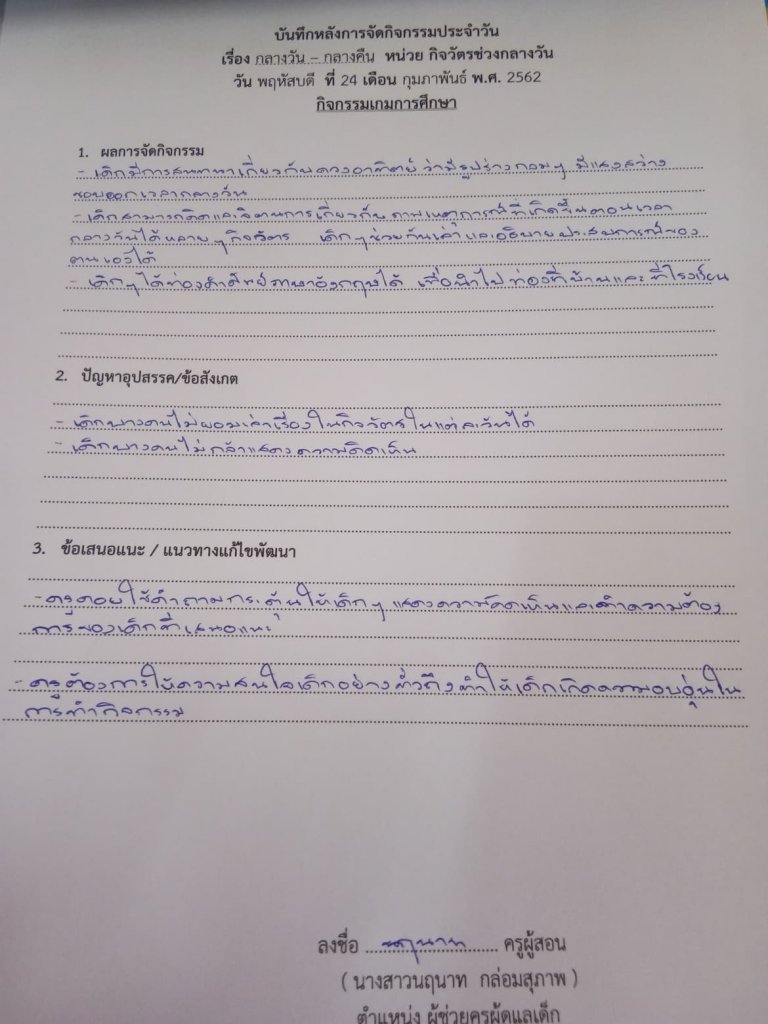 บันทึกหลังการจัดกิจกรรมประจำวัน
เรื่อง กลางวัน – กลางคืน หน่วย กิจวัตรช่วงกลางวัน
วัน พฤหัสบดี ที่ 24 เดือน กุมภาพันธ์ พ.ศ. 2562
กิจกรรมเกมการศึกษา
1. ผลการจัดกิจกรรม
- เด็กมีการสนทนาเกี่ยวกับดวงอาทิตย์ ว่ามีรูปร่างกลมๆ มีแสงสว่าง
ชอบออกเวลากลางวัน
- เด็กสามารถคิดและจินตนาการเกี่ยวกับ ภาพเหตุการณ์ที่เกิดขึ้นตอนเวลา
กลางวันได้หลายๆกิจวัตร เด็กๆช่วยกันเล่าและอธิบายประสบการณ์ของ
ตนเองได้
- เด็กๆได้ท่องคำศัพท์ภาษาอังกฤษได้ เพื่อนำไปท่องที่บ้านและที่โรงเรียน
2. ปัญหาอุปสรรค/ข้อสังเกต
- เด็กบางคนไม่ยอมเล่าเรื่องในกิจวัตรในแต่ละวันได้
- เด็กบางคนไม่กล้าแสดงความคิดเห็น
3. ข้อเสนอแนะ / แนวทางแก้ไขพัฒนา
- ครูคอยใช้คำถามกระตุ้นให้เด็กๆ แสดงความคิดเห็นและทำความต้อง
การของเด็กที่เสนอแนะ
- ครูต้องการให้ความสนใจเด็กอย่างทั่วถึงทำให้เด็กเกิดความอบอุ่นใน
การทำกิจกรรม
ลงชื่อ นฤนาท ครูผู้สอน
( นางสาวนฤนาท กล่อมสุภาพ )
ตำแหน่ง ผู้ช่วยครูผู้ดูแลเด็ก